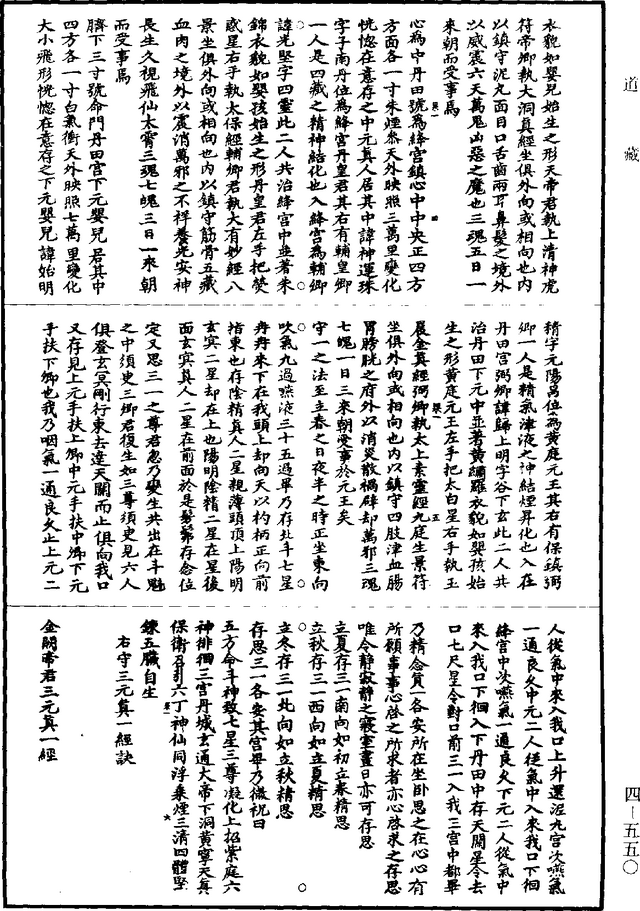 道藏
衣貌如嬰兒始生之形天帝君執上清神虎
符帝卿執大洞真經坐俱外向或相向也內
以鎮守泥丸面目口舌齒兩耳鼻髮之境外
以威震六天萬鬼凶惡之魔也三魂五日一
來朝而受事焉
心為中丹田號為絳宮鎮心中中央正四方
方面各一寸朱煙參天外映照三萬里變化
恍惚在意存之中元真人居其中諱神運珠
字子南丹位為絳宮丹皇君其右有輔皇卿
一人是四藏之精神結化也入絳宮為輔卿
諱光堅字四靈此二人共治絳宮中並著朱
錦衣貌如嬰孩始生之形丹皇君左手把熒
惑星右手執太保經輔卿君執大有妙經八
景坐俱外向或相向也內以鎮守筋骨五藏
血肉之境外以震消萬邪之不祥養光安神
長生久視飛仙太霄三魂七魄三日一來朝
而受事焉
臍下三寸號命門丹田宮下元嬰兒居其中
四方各一寸白氣衝天外映照七萬里變化
大小飛形恍惚在意存之下元嬰兒諱始明
精字元陽昌位為黃庭元王其右有保鎮弼
卿一人是精氣津液之神結煙昇化也入在
丹田宮弼卿諱歸上明字谷下玄此二人共
治丹田下元中並著黃繡羅衣貌如嬰孩始
生之形黃庭元王左手把太白星右手執玉
晨金真經弼卿執太上素靈經九庭生景符
坐俱外向或相向也內以鎮守四肢津血腸
胃膀胱之府外以消災散禍辟却萬邪三魂
七魄一日三來朝受事於元王矣
守一之法至立春之日夜半之時正坐東向
吹氣九過嚥液三十五過畢乃存北斗七星
冉冉來下在我頭上却向天以杓柄正向前
指東也存陰精真人二星親薄頭頂上陽明
玄冥二星却在上也陽明陰精二星在星後
面玄冥真人二星在前面於是髣髴存念位
定又思三一之尊君忽乃變生共出在斗魁
之中須臾三卿君復生如三尊須臾見六人
俱登玄冥剛行東去達天關而止俱向我口
又存見上元手扶上卿中元手扶中卿下元
手扶下卿也我乃咽氣一通良久止上元二
人從氣中來入我口上升還泥丸宮次嚥氣
一通良久中元二人從氣中入來我口下徊
絳宮中次嚥氣一通良久下元二人從氣中
來入我口下徊入下丹田中存天關星令去
口七尺星令對口前三一入我三宮中都畢
乃精念真一各安所在坐臥思之在心心有
所願事事心啟之所求者亦心啟求之存思
唯令靜寂靜之寢室晝日亦可存思
立夏存三一南向如初立春精思
立秋存三一西向如立夏精思
立冬存三一北向如立秋精思
存思三一各安其宮畢乃微祝曰
五方命斗神致七星三尊凝化上招紫庭六
神徘徊三宮丹城玄通大帝下洞黃寧天真
保衛召引六丁神仙同浮乘煙三清四體堅
鍊五臟自生
右守三元真一經訣
金闕帝君三元真一經
四—五五〇